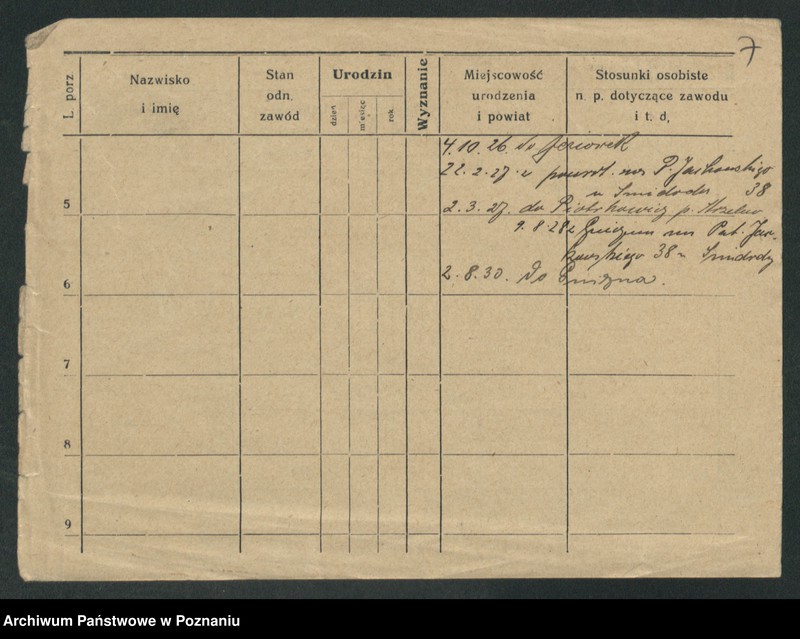 7
L. porz.
Nazwisko
i imię
Stan
odn.
zawód
Urodzin
dzień
miesiąc
rok
Wyznanie
Miejscowość
urodzenia
i powiat
Stosunki osobiste
n. p. dotyczące zawodu
i t. d,
4.10.26. do
22.2.27. z powrot. na P.
38
5
2.3.27. do Piotrkowic p.
9.8.28 z Gniezna na Pat. Jac-
kowskiego 38 u
6
2.8.30. do Gniezna.
7
8
9
Archiwum Państwowe w Poznaniu